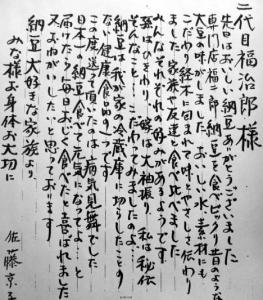 二代目福治郎様
先日はおいしい納豆ありがとうございました
専門店福二郎納豆を食べビックリ昔のような
大豆の味がしました おいしい水 素材にも
こだわり経木に包まれて味とやさしさ伝わり
ました 家族や友達と食べ比べました
みんなそれぞれの好みがあるようです
孫はひきわり 婿は大袖振り 私は秘伝
そんなこと…こだわってみましたのよ…
納豆は我が家の冷蔵庫に切らしたことの
ない健康食品の1つです
この度送って頂いたのは病気見舞でした
日本一の納豆食べて元気になってよ…と
届けたら毎日おじく食べたと喜ばれました
又おねがいしたいと思っております
納豆大好きな家族より
みな様お身体お大切に
佐藤京子